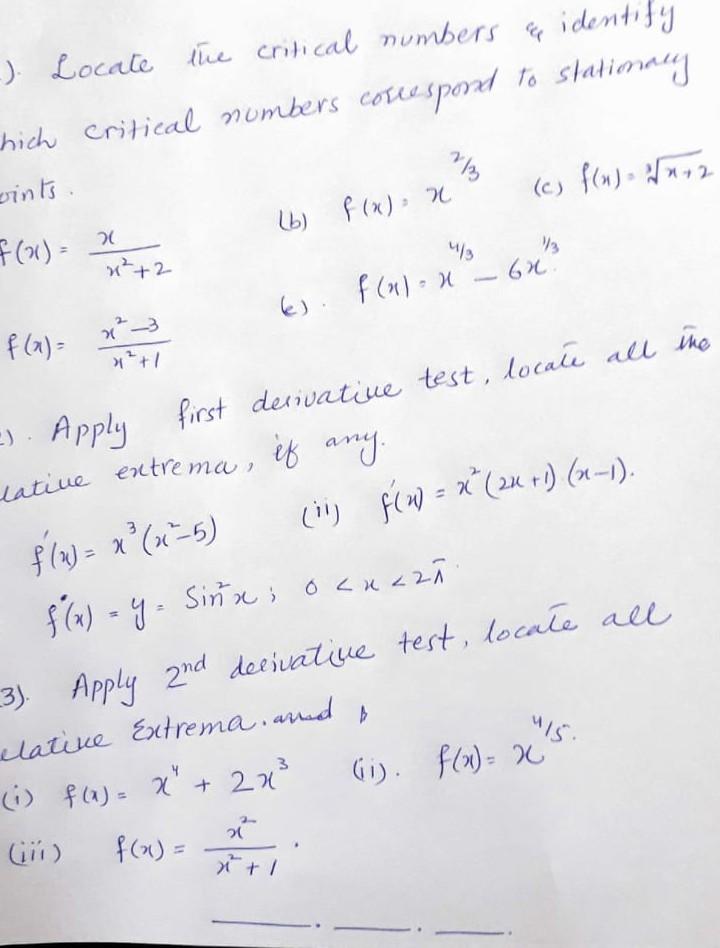 ). Locate the critical numbers & identify
hich critical numbers correspond to stationary
oints.
f(x) = x/(x²+2) (b) f(x) = x^(2/3) (c) f(x) = ∛(x+2)
f(x) = (x²-3)/(x²+1) (e). f(x) = x^(4/3) - 6x^(1/3)
). Apply first derivative test, locate all the
lative extrema, if any.
f'(x) = x³(x²-5) (ii) f'(x) = x²(2x+1)(x-1).
f(x) = y = Sin²x ; 0 < x < 2π
3). Apply 2nd derivative test, locate all
elative Extrema. and
(i) f(x) = x⁴ + 2x³ (ii). f(x) = x^(4/5).
(iii) f(x) = x²/(x²+1) .